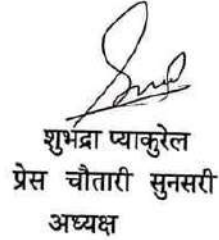 शुभद्रा प्याकुरेल
प्रेस चौतारी सुनसरी
अध्यक्ष